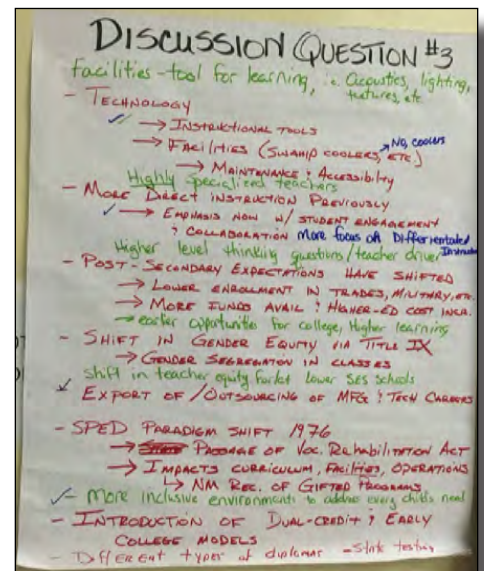 DISCUSSION QUESTION #3
facilities - tool for learning, i.e. acoustics, lighting,
textures, etc
- TECHNOLOGY
→ INSTRUCTIONAL TOOLS
No, coolers
→ FACILITIES (SWAMP COOLERS, ETC)
→ MAINTENANCE & ACCESSIBILTY
Highly specialized teachers
- MORE DIRECT INSTRUCTION PREVIOUSLY
→ EMPHASIS NOW W/ STUDENT ENGAGEMENT
& COLLABORATION More focus on Differientated
Higher level thinking questions/teacher driven Instruction
- POST-SECONDARY EXPECTATIONS HAVE SHIFTED
→ LOWER ENROLLMENT IN TRADES, MILITARY, etc.
→ MORE FUNDS AVAIL & HIGHER-ED COST INCR.
→ earlier opportunities for college, higher learning
- SHIFT IN GENDER EQUITY VIA TITLE IX
→ GENDER SEGREGATION IN CLASSES
shift in teacher equity for lower SES schools
EXPORT OF/OUTSOURCING OF MFG & TECH CAREERS
- SPED PARADIGM SHIFT 1976
→ PASSAGE OF VOC. REHABILITATION ACT
→ IMPACTS CURRICULUM, FACILITIES, OPERATIONS
↳ NM REC. OF GIFTED PROGRAMS
- More inclusive environments to address every child's need
- INTRODUCTION OF DUAL-CREDIT & EARLY
COLLEGE MODELS
- Different types of diplomas - State testing